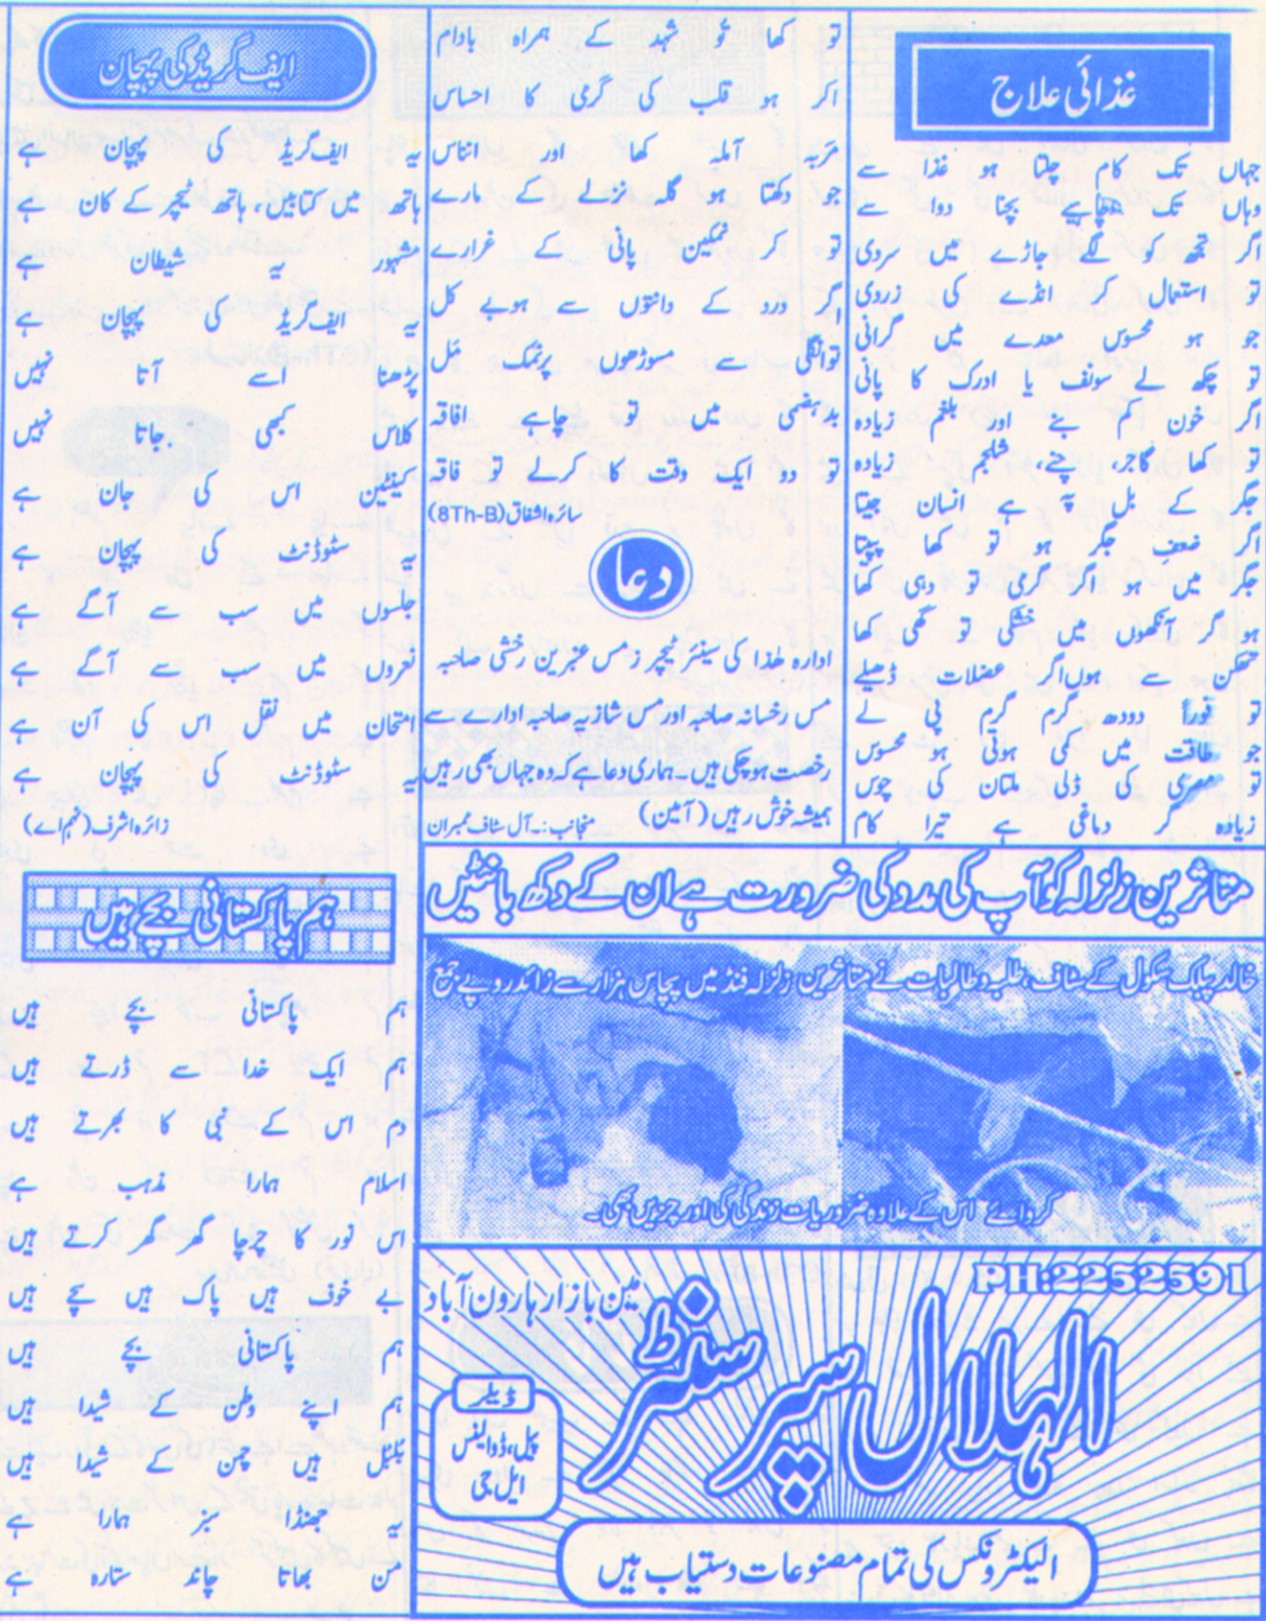 غذائی علاج
جہاں تک کام چلتا ہو غذا سے
وہاں تک چاہیے بچنا دوا سے
اگر تجھ کو لگے جاڑے میں سردی
تو استعمال کر انڈے کی زردی
جو ہو محسوس معدے میں گرانی
تو چکھ لے سونف یا ادرک کا پانی
اگر خون کم بنے اور بلغم زیادہ
تو کھا گاجر، چنے، شلجم زیادہ
جگر کے بل پہ ہے انسان جیتا
اگر ضعف جگر ہو تو کھا پپیتا
جگر میں ہو اگر گرمی تو دہی کھا
ہو گر آنتوں میں خشکی تو گھی کھا
تھکن سے ہوں اگر عضلات ڈھیلے
تو فوراً دودھ گرم گرم پی لے
جو طاقت میں کمی ہوتی ہو محسوس
تو مصری کی ڈلی ملتان کی چوس
زیادہ گر دماغی ہے تیرا کام
تو کھا تو شہد کے ہمراہ بادام
اگر ہو قلب کی گرمی کا احساس
مربہ آملہ کھا اور انناس
جو دکھتا ہو گلہ نزلے کے مارے
تو کر نمکین پانی کے غرارے
گر درد کے دانتوں سے ہوبے کل
توانگلی سے مسوڑھوں پرنمک مل
بدہضمی میں تو چاہے افاقہ
تو دو ایک وقت کا کرلے تو فاقہ
سائرہ اشفاق (8Th-B)
دعا
ادارہ ھذا کی سینئر ٹیچرز مس عنبرین رخشی صاحبہ
مس رخسانہ صاحبہ اور مس شازیہ صاحبہ ادارے سے
رخصت ہو چکی ہیں۔ ہماری دعا ہے کہ وہ جہاں بھی رہیں
ہمیشہ خوش رہیں (آمین) منجانب:۔ آل سٹاف ممبران
ایف گریڈ کی پہچان
یہ ایف گریڈ کی پہچان ہے
ہاتھ میں کتابیں، ہاتھ ٹیچر کے کان ہے
مشہور یہ شیطان ہے
یہ ایف گریڈ کی پہچان ہے
پڑھنا اسے آتا نہیں
کلاس کبھی جاتا نہیں
کینٹین اس کی جان ہے
یہ سٹوڈنٹ کی پہچان ہے
جلسوں میں سب سے آگے ہے
نعروں میں سب سے آگے ہے
امتحان میں نقل اس کی آن ہے
یہ سٹوڈنٹ کی پہچان ہے
زائرہ اشرف (نہم اے)
ہم پاکستانی بچے ہیں
ہم پاکستانی بچے ہیں
ہم ایک خدا سے ڈرتے ہیں
دم اس کے نبی کا بھرتے ہیں
اسلام ہمارا مذہب ہے
اس نور کا چرچا گھر گھر کرتے ہیں
بے خوف ہیں پاک ہیں سچے ہیں
ہم پاکستانی بچے ہیں
ہم اپنے وطن کے شیدا ہیں
بلبل ہیں چمن کے شیدا ہیں
یہ جھنڈا سبز ہمارا ہے
من بھاتا چاند ستارہ ہے
متاثرین زلزلہ کو آپ کی مدد کی ضرورت ہے ان کے دکھ بانٹیں
خالد پبلک سکول کے سٹاف، طلبہ و طالبات نے متاثرین زلزلہ فنڈ میں پچاس ہزار سے زائد روپے جمع
کروائے اس کے علاوہ ضروریات زندگی کی اور چیزیں بھی۔
PH:2252591
مین بازار ہارون آباد
الہلال سپر سنٹر
ڈیلر
پیل، ڈاولینس
ایل جی
الیکٹرونکس کی تمام مصنوعات دستیاب ہیں